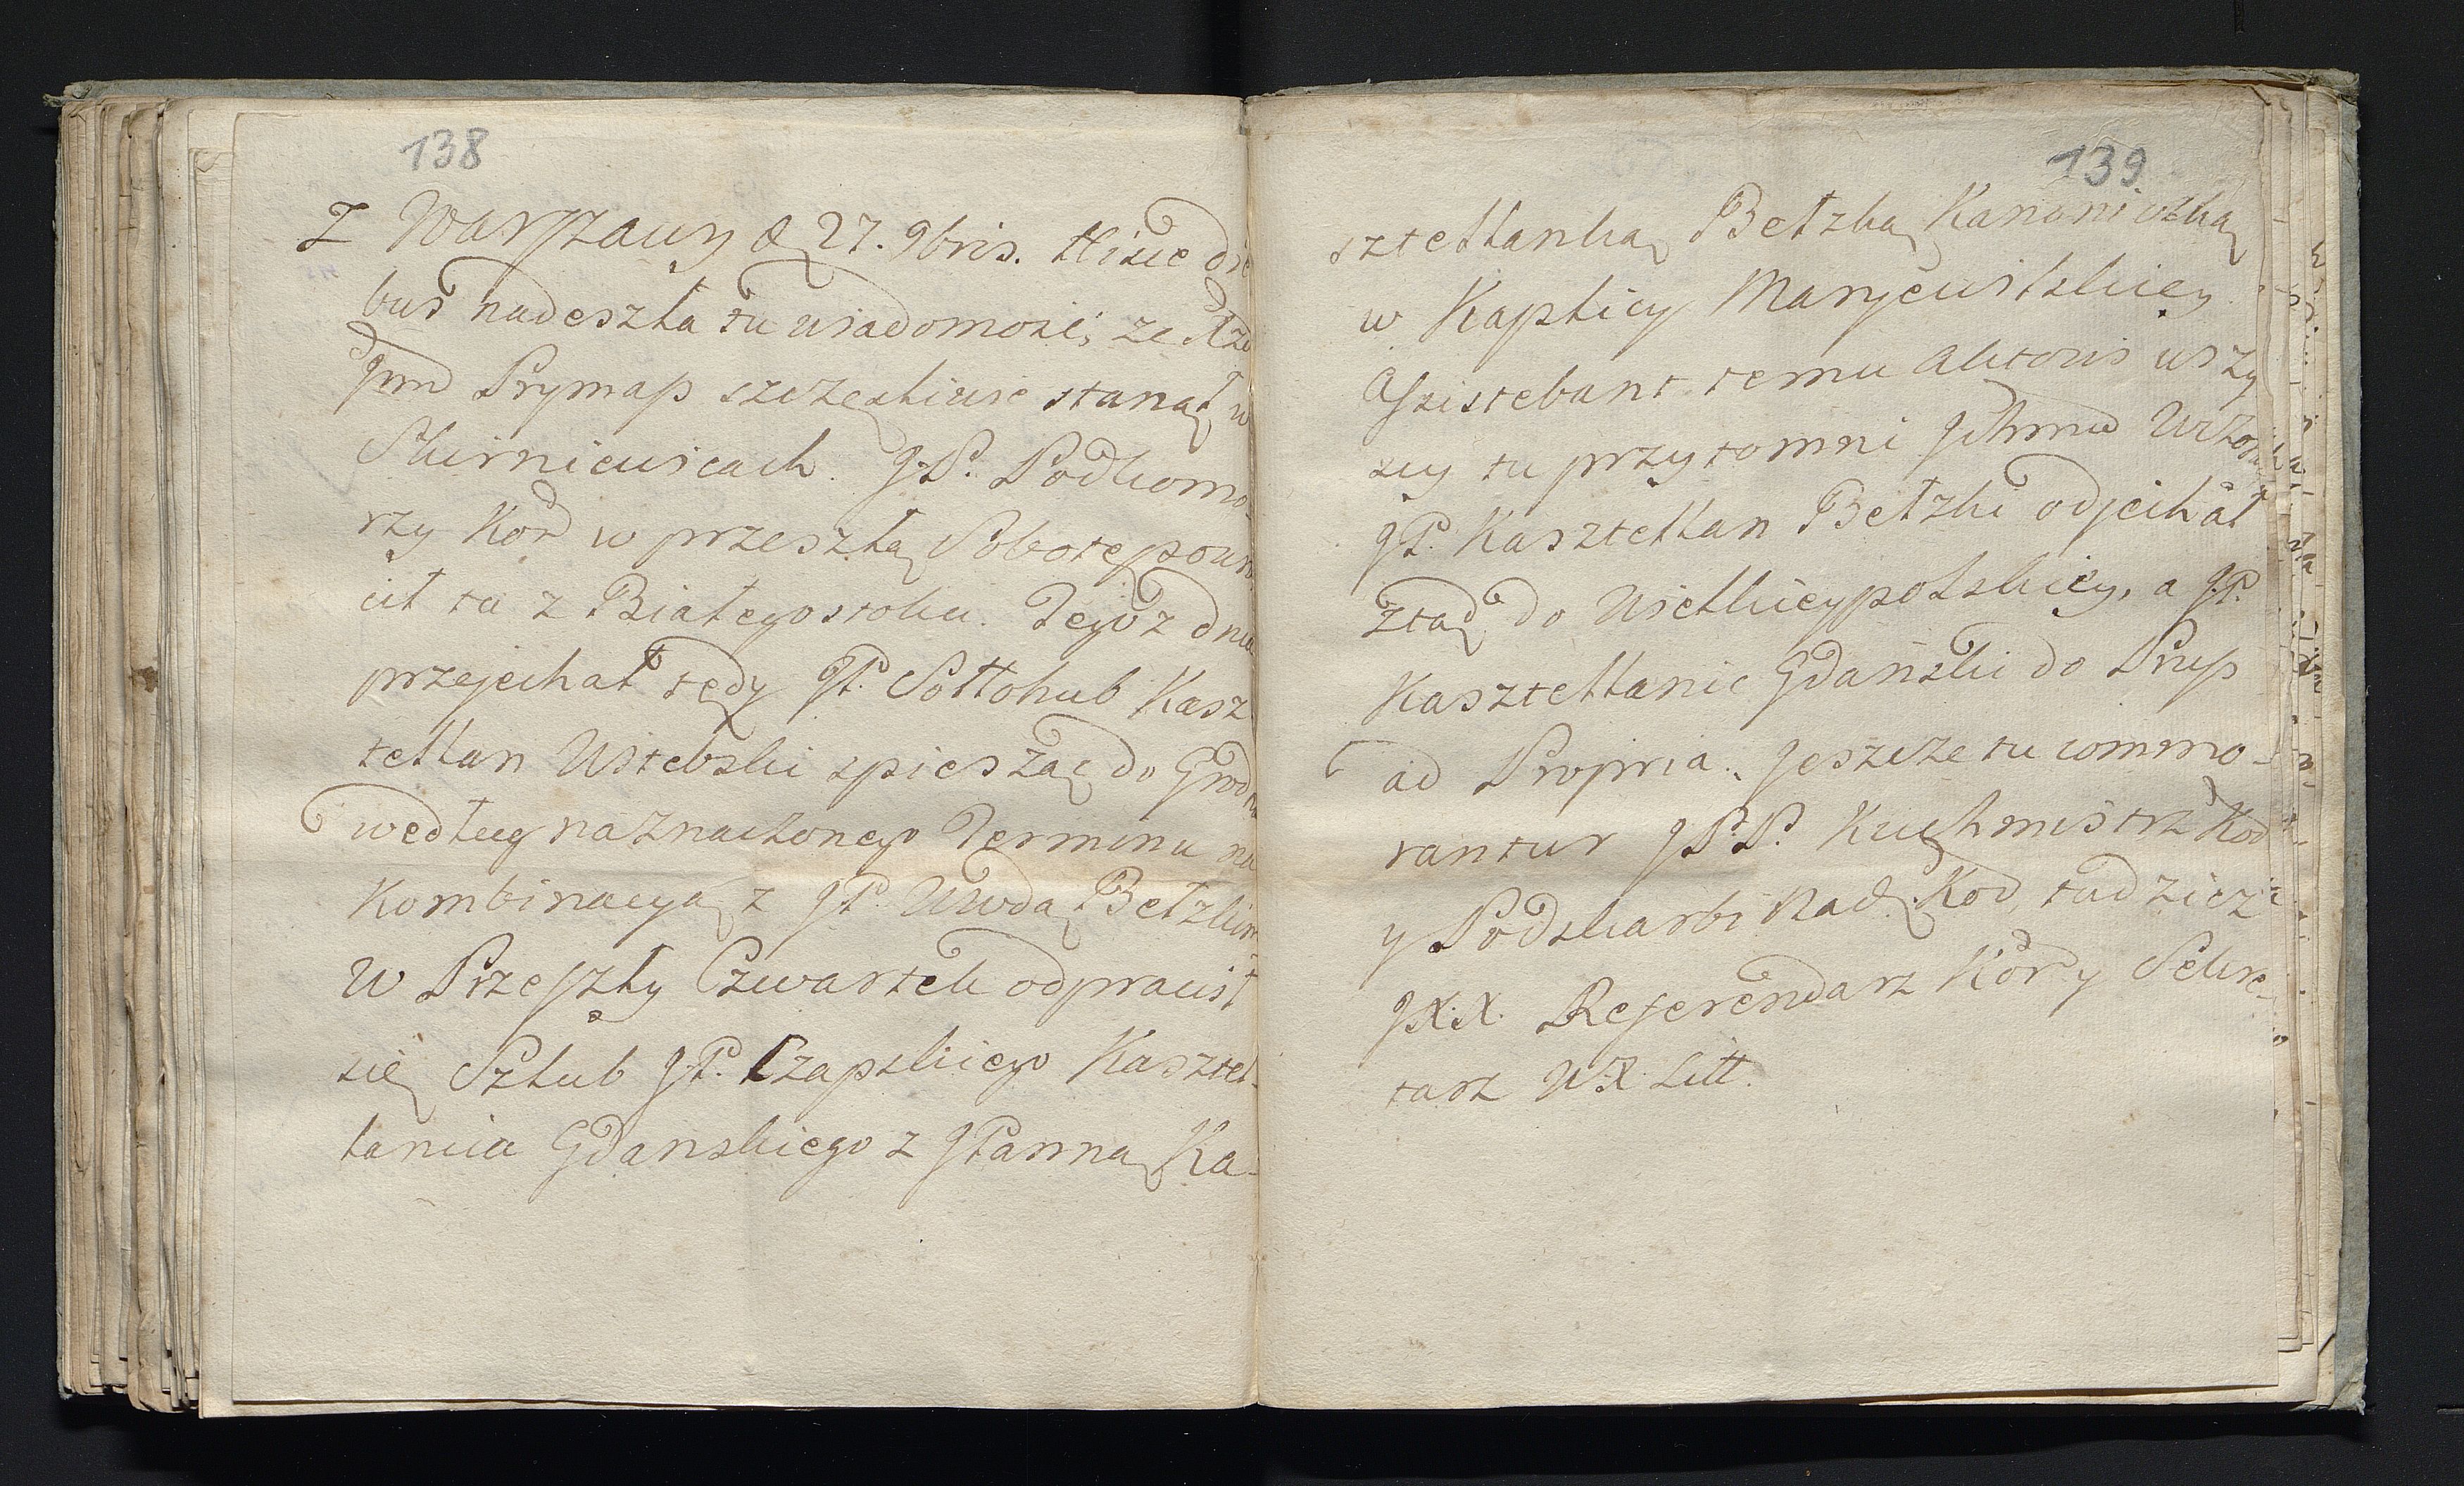 138
Z Warszawy d 27. 9bris. Hisce die
bus nadeszła tu wiadomość, ze Xże
Jmć Prymas szczęsliwie stanął w
Skierniewicach. JP. Podkomo-
rzy Kor w przeszłą Sobotę powro
cił tu z Białegostoku. Tegoz dnia
przejechał tędy JP. Sołłohub Kasz
tellan Witebski spiesząc do Grodna
według naznaczonego Terminu na
Kombinacyą z JP. Wwodą Bełzkim
W Przeszły Czwartek odprawił
się Szlub JP. Czapskiego Kasztel-
lanica Gdanskiego z JPanną Ka-
139
sztellanką Bełzką Kanoniczką
w Kaplicy Maryewilskiey.
Assistebant temu Aktowi wszy
scy tu przytomni
JP. Kasztellan Bełzki odjechał
ztąd do Wielkieypolskiey, a JP.
Kasztellanic Gdański do Prus
ad Propria. Jeszcze tu commo-
rantur JPP. Kuchmistrz Kor
y Podskarbi Nad. Kor, tudziez
JXX. Referendarz Kor y Sekre-
tarz WX Litt.